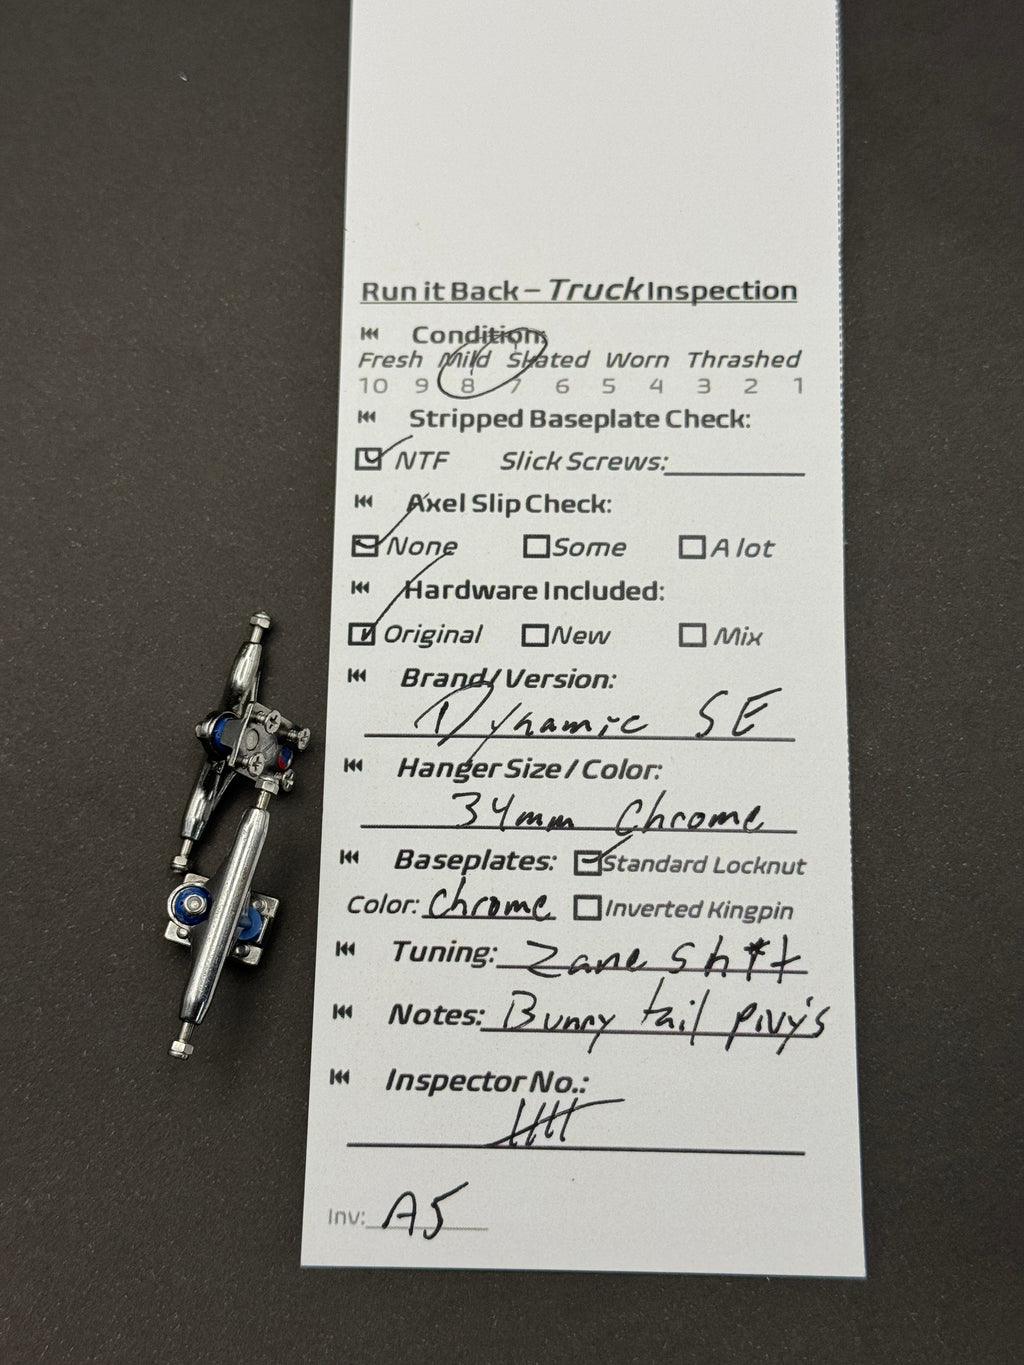 Run it Back – Truck Inspection
Condition:
Fresh Mild Skated Worn Thrashed
10 9 8 7 6 5 4 3 2 1
Stripped Baseplate Check:
NTF Slick Screws:
Axel Slip Check:
None Some A lot
Hardware Included:
Original New Mix
Brand/Version:
Dynamic SE
Hanger Size / Color:
34mm Chrome
Baseplates: Standard Locknut
Color: Chrome Inverted Kingpin
Tuning: Zane sh*t
Notes: Bunny tail pivy's
Inspector No.:
Inv: A5